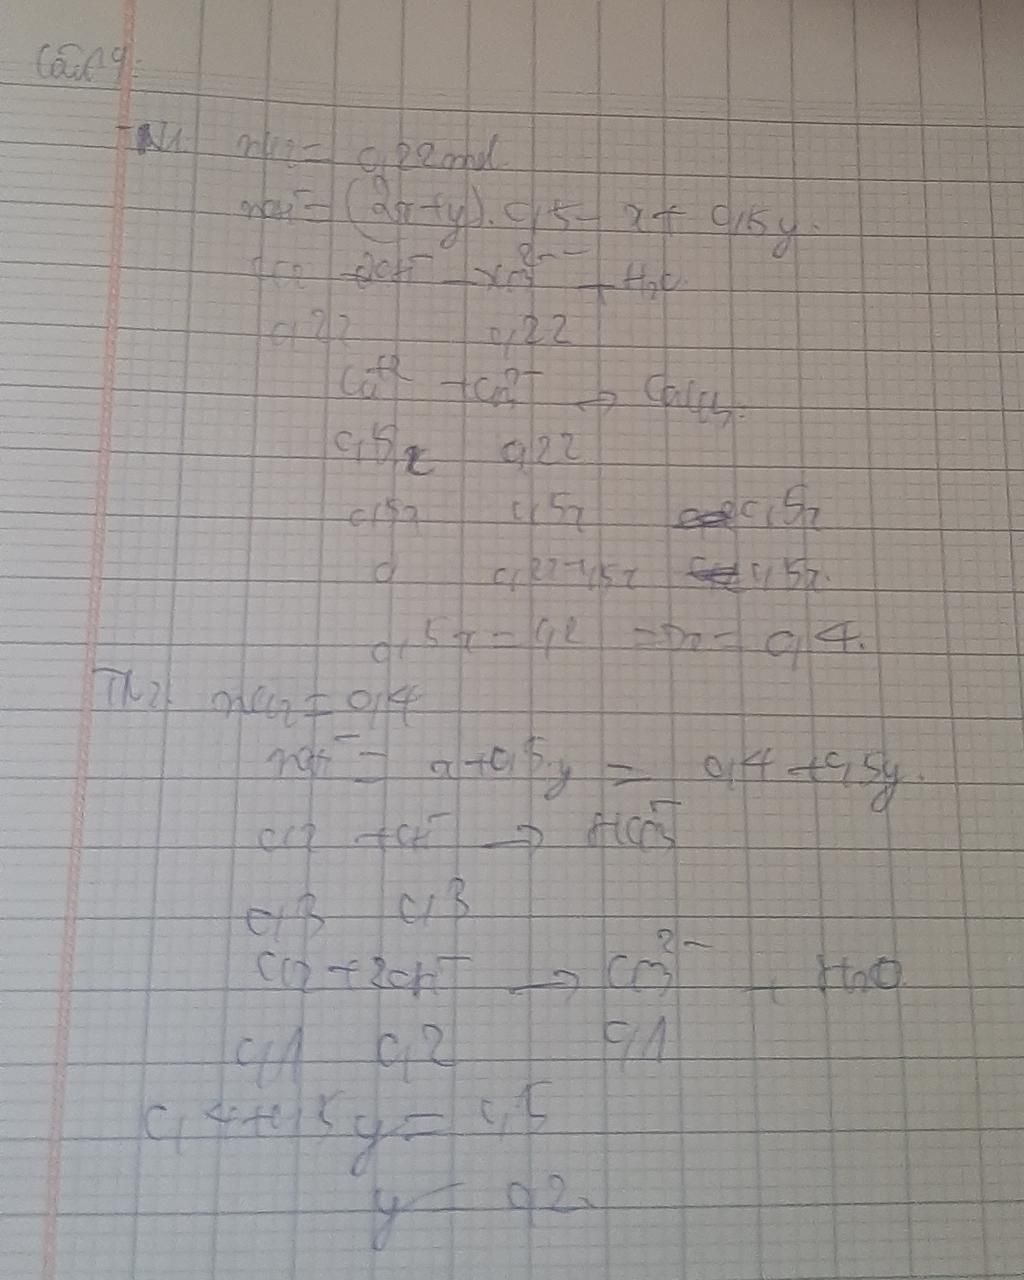 Câu 9:
TH1 nCO2 = 0,22 mol
nOH⁻ = (2x+y). 0,5 = x + 0,5y.
CO2 2OH⁻ → CO3²⁻ + H2O.
0,22 0,22
Ca⁺² + CO3²⁻ → CaCO3.
0,5x 0,22
0,5x 0,5x 0,5x
0 0,22-0,5x 0,5x.
0,5x = 0,2 => x = 0,4.
TH2 nCO2 = 0,4
nOH⁻ = x + 0,5y = 0,4 + 0,5y.
CO2 + OH⁻ → HCO3⁻
0,3 0,3
CO2 + 2OH⁻ → CO3²⁻ + H2O
0,1 0,2 0,1
0,4+0,5y = 0,5
y = 0,2.